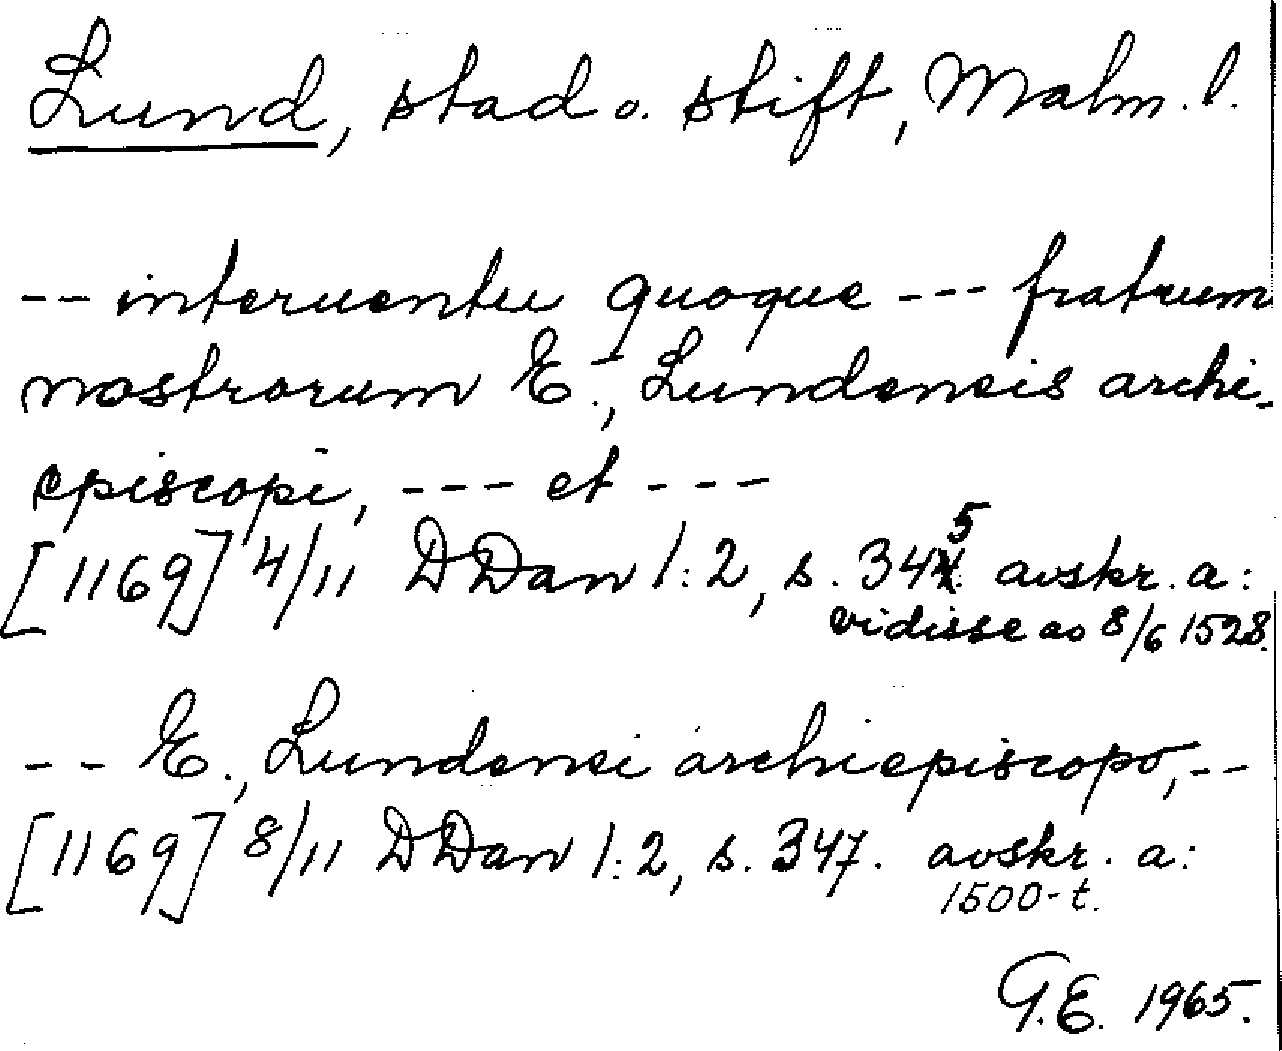 Lund, stad o. stift, Malm. l.
-- interuentu quoque --- fratrum
nostrorum E., Lundensis archi-
episcopi, --- et ---
[1169] 4/11 DDan 1:2, s. 345 avskr. a:
vidisse ao 8/6 1528.
-- E., Lundensi archiepiscopo, --
[1169] 8/11 DDan 1:2, s. 347. avskr. a:
1500-t.
G.E. 1965.